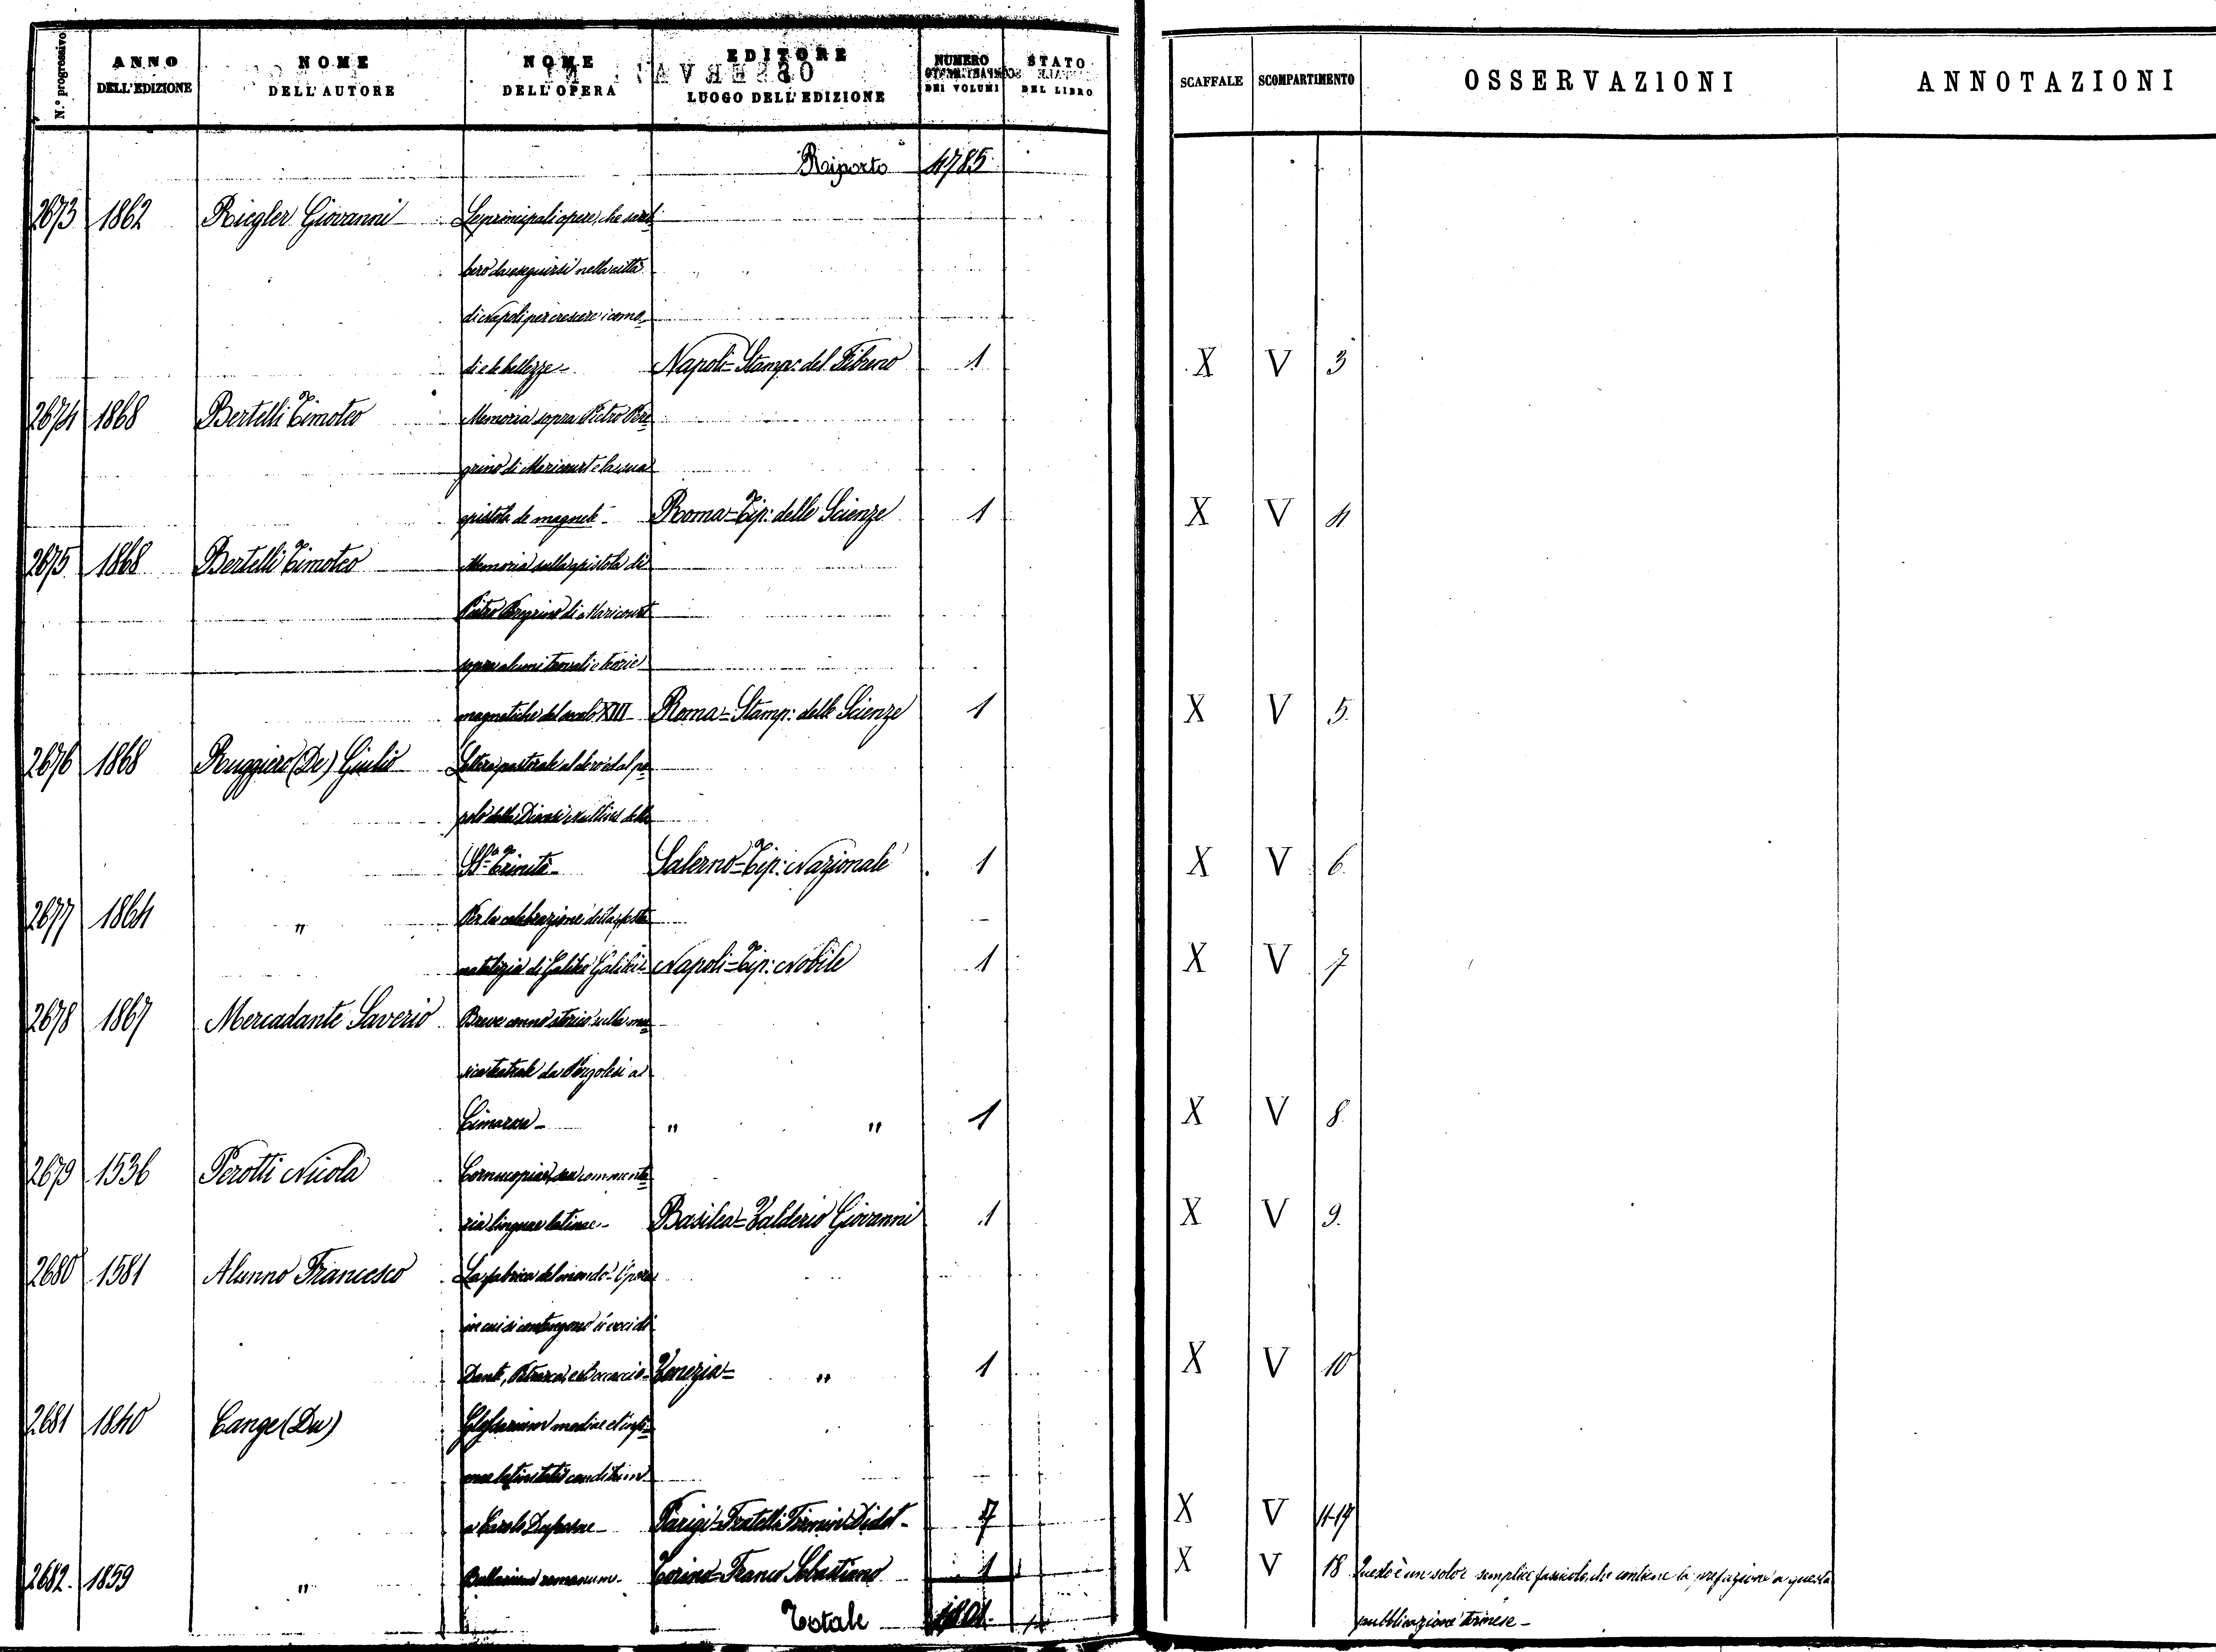 N.° progressivo
ANNO DELL'EDIZIONE
NOME DELL'AUTORE
NOME DELL'OPERA
EDITORE LUOGO DELL'EDIZIONE
NUMERO DEI VOLUMI
STATO DEL LIBRO
SCAFFALE
SCOMPARTIMENTO
OSSERVAZIONI
ANNOTAZIONI
Riporto 4785
2673 1862 Riegler Giovanni Le principali opere, che sareb-
bero da eseguirsi nella città
di Napoli per crescere i como-
di e le bellezze - Napoli = Stamp: del Fibreno 1 X V 3
2674 1868 Bertelli Timoteo Memoria sopra Pietro Pere-
grino di Maricourt e la sua
epistola de magnete - Roma = Tip: delle Scienze 1 X V 4
2675 1868 Bertelli Timoteo Memoria sulla epistola di
Pietro Peregrino di Maricourt
sopra alcuni trovati e teorie
magnetiche del secolo XIII - Roma = Stamp: delle Scienze 1 X V 5.
2676 1868 Ruggiero (De) Giulio Lettera pastorale al clero ed al po-
polo della Diocesi Nullius della
SS.a Trinità - Salerno = Tip: Nazionale 1 X V 6.
2677 1864 " Per la celebrazione della festa
natalizia di Galileo Galilei - Napoli = Tip: Nobile 1 X V 7
2678 1867 Mercadante Saverio Breve cenno storico sulla mu-
sica teatrale da Pergolesi a
Cimarosa - " " 1 X V 8
2679 1536 Perotti Nicola Cornucopiae, seu commenta-
ria linguae latinae - Basilea = Valderio Giovanni 1 X V 9.
2680 1581 Alunno Francesco La fabrica del mondo = Opera
in cui si contengono le voci di
Dante, Petrarca, e Boccaccio - Venezia = " 1 X V 10
2681 1840 Cange (Du) Glossarium mediae et infi-
mae latinitatis conditum
a Carolo Dufresne - Parigi = Fratelli Firmin Didot - 7 X V 11-17
2682. 1859 " Bullarium romanum - Torino = Franco Sebastiano 1 X V 18 Questo è un solo e semplice fascicolo, che contiene la prefazione a questa
pubblicazione torinese -
Totale 4801.